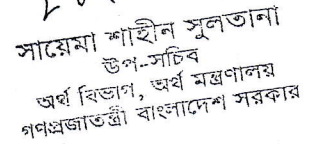 সায়েমা শাহীন সুলতানা
উপ-সচিব
অর্থ বিভাগ, অর্থ মন্ত্রণালয়
গণপ্রজাতন্ত্রী বাংলাদেশ সরকার